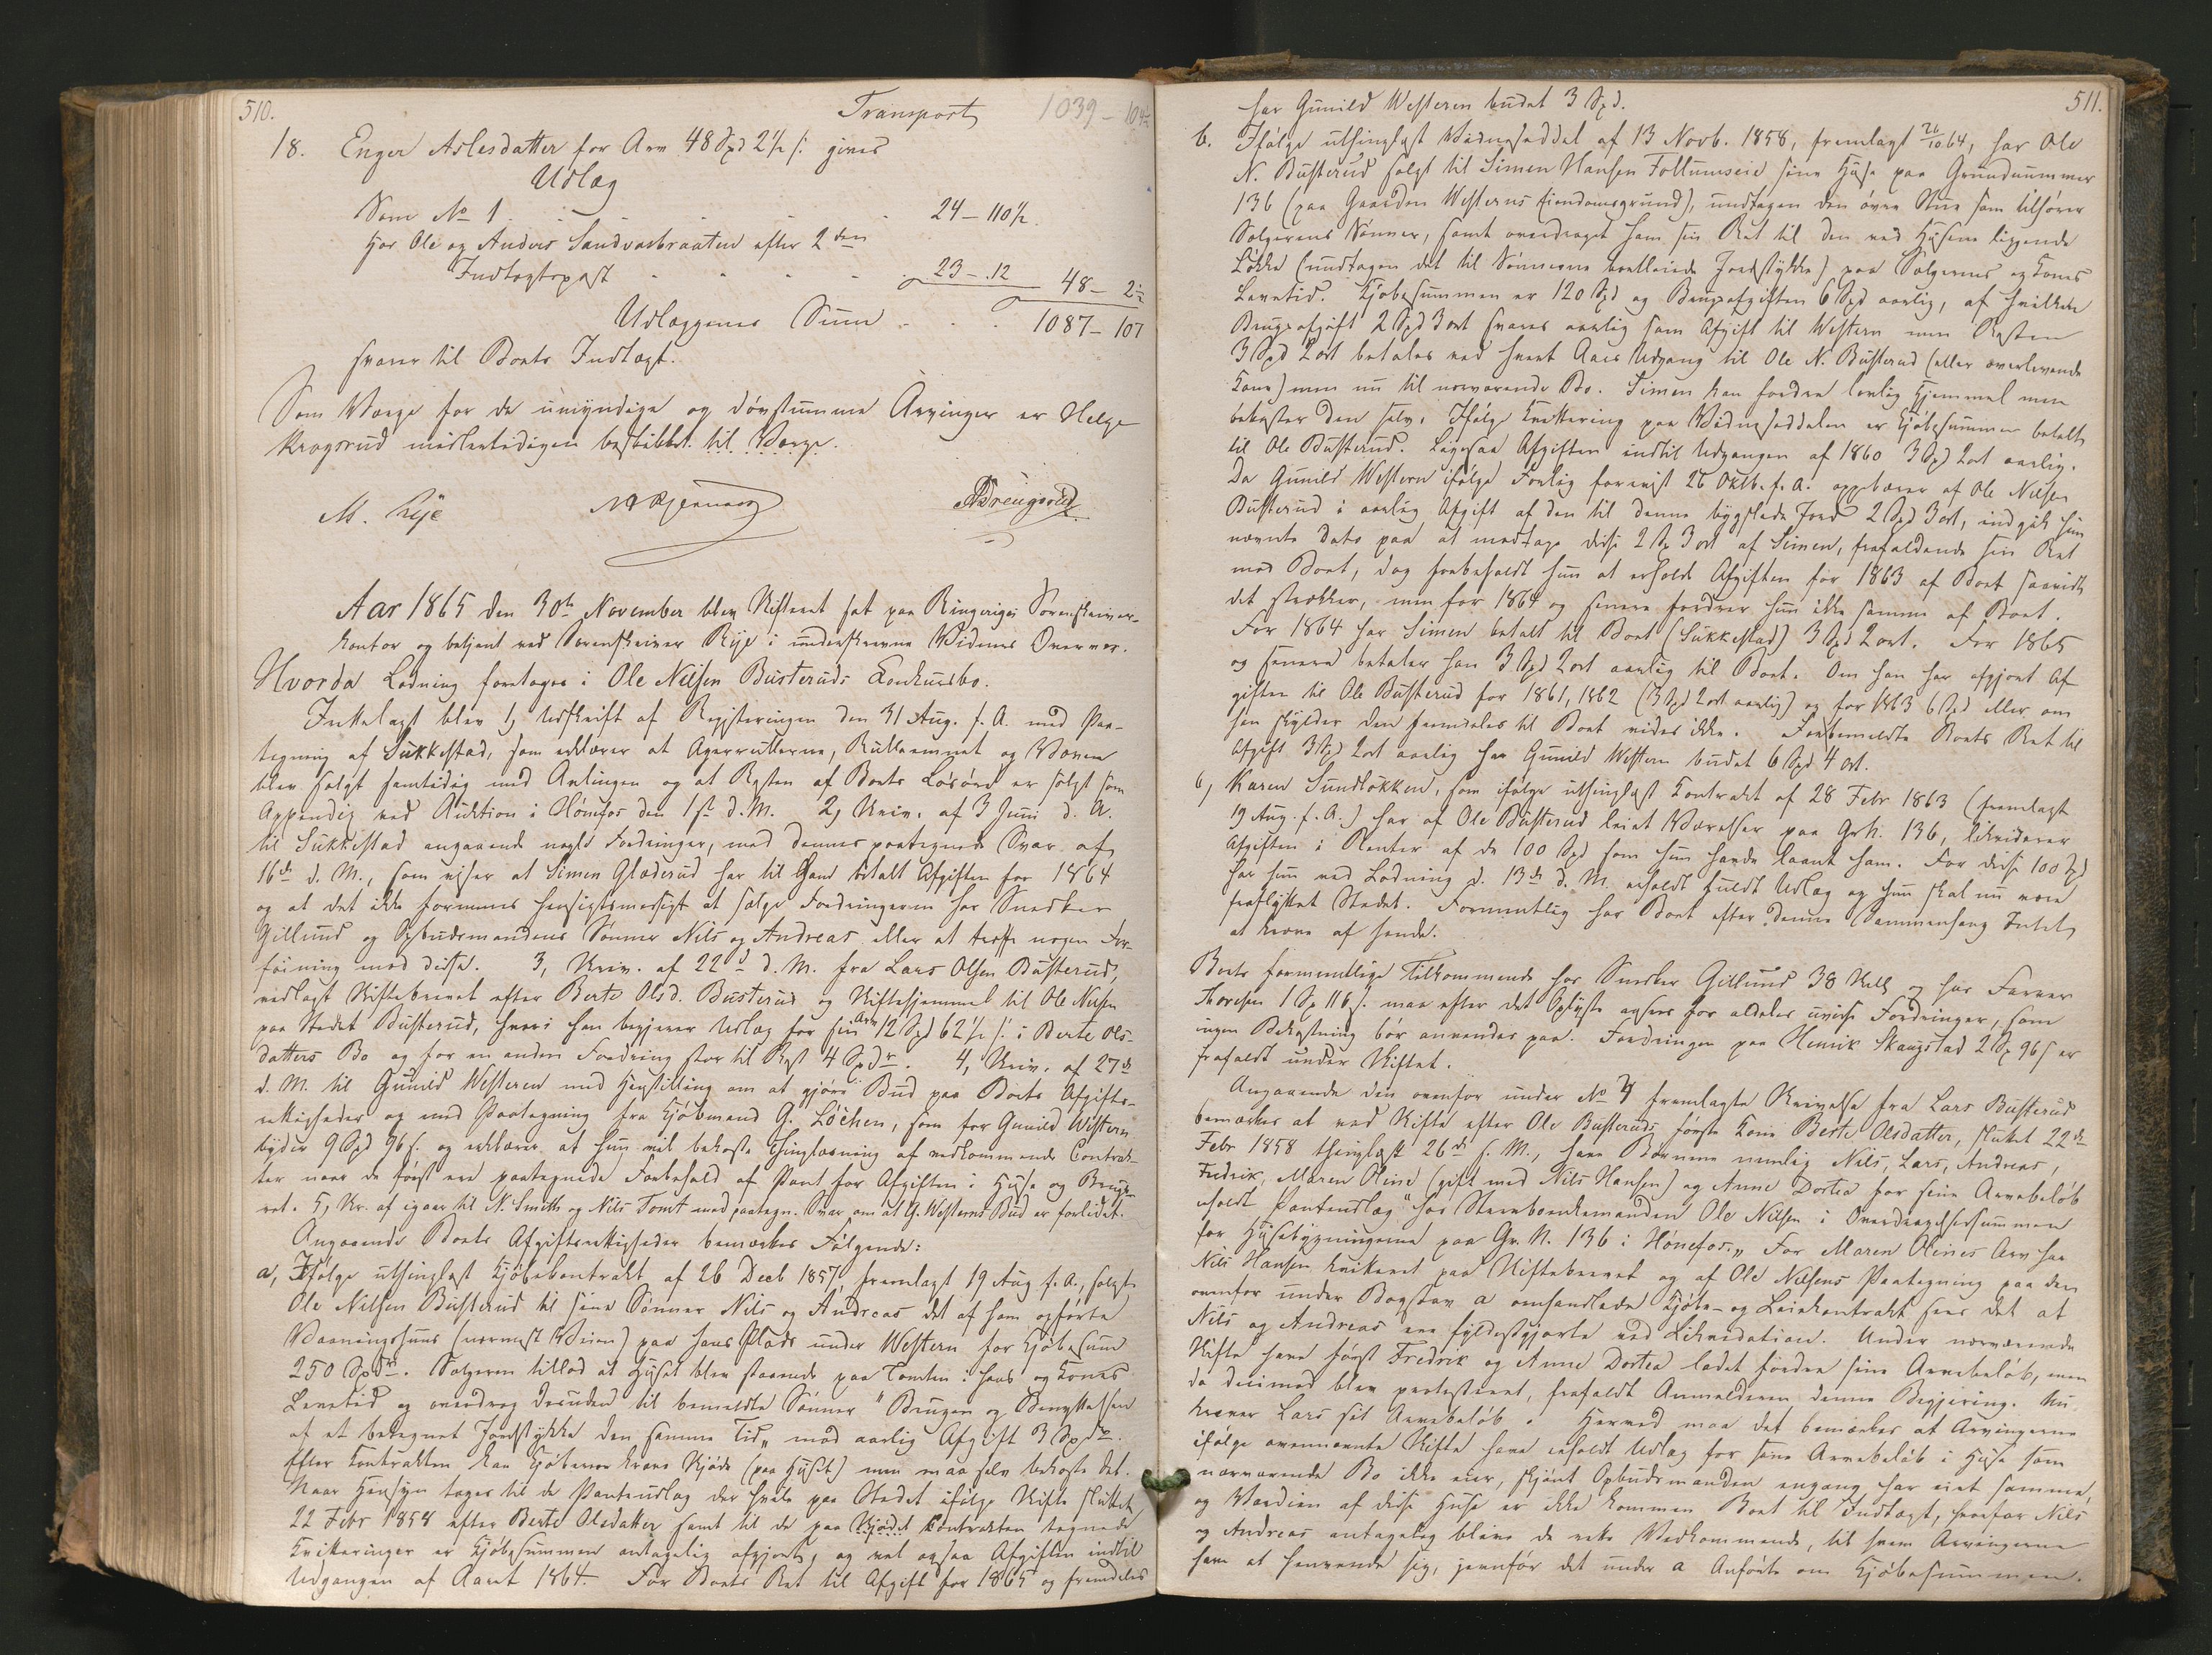 510.
Transport 1039 – 104½
18. Enger Aslesdatter for Arv 48 Spd 2½ s. gives
Udlæg
Som No 1. 24 – 110½
Hos Ole og Anders Sandvasbraaten efter 2den
Indtægtspost 23 – 12 48 – 2½
Udlæggenes Sum 1087 – 107
svarer til Boets Indtægt.
Som Værge for de umyndige og døvstumme Arvinger er Helge
Kragsrud midlertidigen beskikket til Værge.
M. Rye
Aar 1865 den 30te November blev Skifteret sat paa Ringeriges Sorenskriver-
kontor og betjent ved Sorenskriver Rye i underskrevne Vidners Overvær.
Hvorda Lodning foretoges i Ole Nilsen Busteruds Konkursbo.
Fremlagt blev 1, Udskrift af Registreringen den 31 Aug. f. A. med Paa-
tegning af Sukkestad, som erklærer at Agerrullerne, Rulleemnet og Vænen
blev solgt samtidig med Avlingen og at Resten af Boets Løsøre er solgt som
Appendix ved Auktion i Hønefos den 1ste d. M. 2, Skriv. af 3 Juni d. A.
til Sukkestad angaaende nogle Fordringer, med dennes paategnede Svar af
16de d. M., som viser at Simen Glæserud har til ham betalt Afgiften for 1864
og at det ikke formenes hensigtsmessigt at sælge Fordringerne hos Snedker
Gillund og Opbudsmandens Sønner Nils og Andreas eller at træffe nogen For-
føining mod disse. 3, Skriv. af 22d d. M. fra Lars Olsen Busterud,
vedlagt Skiftebrevet efter Berte Olsd. Busterud og Skiftehjemmel til Ole Nilsen
paa Stedet Busterud, hvori han begjærer Udlæg for sin Arv 12 Spd 62½ s. i Berte Ols-
datters Bo og for en anden Fordring stor til Rest 4 Spdr. 4, Skriv. af 27de
d. M. til Gunild Western med Henstilling om at gjøre Bud paa Boets Afgifts-
rettigheder og med Paategning fra Kjøbmand G. Løchen, som for Gunild Western
byder 9 Spd 96 s. og erklærer at hun vil bekoste Thinglæsning af vedkommende Contrak-
ter naar de først ere paategnede Forbehold af Pant for Afgiften i Huse og Brugs-
ret. 5, Skr. af igaar til N. Smith og Nils Tomt med paategn. Svar om at G. Westerns Bud er forlidet.
Angaaende Boets Afgiftsrettigheder bemærkes Følgende:
a, Ifølge uthinglæst Kjøbekontrakt af 26 Decb 1857, fremlagt 19 Aug f. A., solgte
Ole Nilsen Busterud til sine Sønner Nils og Andreas det af ham opførte
Vaaningshuus (nærmest Veien) paa hans Plads under Western for Kjøbesum
250 Spdr. Sælgeren tillod at Huset blev staaende paa Tomten i hans og Kones
Levetid og overdrog desuden til bemeldte Sønner "Brugen og Benyttelsen
af et betegnet Jordstykke den samme Tid" mod aarlig Afgift 3 Spdr.
Efter Kontrakten kan Kjøberne kræve Skjøde (paa Huset) men maa selv bekoste det.
Naar Hensyn tages til de Panteudlæg der hvile paa Stedet ifølge Skifte sluttet
22 Febr 1858 efter Berte Olsdatter samt til de paa Kjøbekontrakten tegnede
Kvitteringer er Kjøbesummen antagelig afgjort, og vel ogsaa Afgiften indtil
Udgangen af Aaret 1864. For Boets Ret til Afgift for 1865 og fremdeles
511.
har Gunild Western budet 3 Spd.
b. Ifølge uthinglæst Skjødeseddel af 13 Novb. 1858, fremlagt 26/10 64, har Ole
N. Busterud solgt til Simen Hansen Follumseie sine Huse paa Grundnummer
136 (paa Gaarden Westerns Eiendomsgrund), undtagen den øvre Stue som tilhører
Sælgerens Sønner, samt overdraget ham sin Ret til den ved Husene liggende
Løkke (undtagen det til Sønnerne bortleiede Jordstykke) paa Sælgerens og Kones
Levetid. Kjøbesummen er 120 Spd og Brugsafgiften 6 Spd aarlig, af hvilken
Brugsafgift 2 Spd 3 ort svares aarlig som Afgift til Western men Resten
3 Spd 2 ort betales ved hvert Aars Udgang til Ole N. Busterud (eller overlevende
Kone) men nu til nærværende Bo. Simen kan fordre lovlig Hjemmel men
bekoster den selv. Ifølge Kvittering paa Skjødeseddelen er Kjøbesummen betalt
til Ole Busterud. Ligesaa Afgiften indtil Udgangen af 1860 3 Spd 2 ort aarlig.
Da Gunild Western ifølge Forlig forevist 26 Oktb. f. A. oppebærer af Ole Nilsen
Busterud i aarlig Afgift af den til denne bygslede Jord 2 Spd 3 ort, indgik hun
nævnte Dato paa at modtage disse 2 Sp. 3 ort af Simen, frafaldende sin Ret
mod Boet, dog forbeholdt hun at erholde Afgiften for 1863 af Boet saavidt
det strækker, men for 1864 og senere fordrer hun ikke samme af Boet.
For 1864 har Simen betalt til Boet (Sukkestad) 3 Spd 2 ort. For 1865
og senere betaler han 3 Spd 2 ort aarlig til Boet. Om han har afgjort Af-
giften til Ole Busterud for 1861, 1862 (3 Spd 2 ort aarlig) og for 1863 6 Spd eller om
han skylder den fremdeles til Boet vides ikke. Forbemeldte Boets Ret til
Afgift 3 Spd 2 ort aarlig har Gunild Western budet 6 Spd 4 ort.
c, Karen Sundløkken, som ifølge uthinglæst Kontrakt af 28 Febr 1863 (fremlagt
19 Aug. f. A.) har af Ole Busterud leiet Værelser paa GrN. 136, likviderer
Afgiften i Renter af de 100 Spd som hun havde laant ham. For disse 100 Spd
har hun ved Lodning d. 13de d. M. erholdt fuldt Udlæg og hun skal nu være
fraflyttet Stedet. Formentlig har Boet efter denne Sammenhæng Intet
at kræve af hende.
Boets formentlige Tilkommende hos Snedker Gillund 38 Skill og hos Farver
Thoresen 1 Sp 116 s. maa efter det Oplyste ansees for aldeles uvisse Fordringer, som
ingen Bekostning bør anvendes paa. Fordringen paa Henrik Skaugstad 2 Sp 96 s er
frafaldt under Skiftet.
Angaaende den ovenfor under No 3 fremlagte Skrivelse fra Lars Busterud
bemærkes at ved Skifte efter Ole Busteruds første Kone Berte Olsdatter, sluttet 22de
Febr 1858 thinglæst 26de s. M., have Børnene nemlig Nils, Lars, Andreas,
Fredrik, Maren Oline (gift med Nils Hansen) og Anne Dortea for sine Arvebeløb
erholdt "Panteudlæg hos Stervboenkemanden Ole Nilsen i Overdragelsessummen
for Husebygningerne paa Gr. N. 136 i Hønefos." For Maren Olines Arv har
Nils Hansen kvitteret paa Skiftebrevet og af Ole Nilsens Paategning paa den
ovenfor under Bogstav a omhandlede Kjøbe- og Leiekontrakt sees det at
Nils og Andreas ere fyldestgjorte ved Likvidation. Under nærværende
Skifte have først Fredrik og Anne Dortea ladet fordre sine Arvebeløb, men
da derimod blev protesteret, frafaldt Anmelderen denne Begjæring. Nu
kræver Lars sit Arvebeløb. Herved maa det bemærkes at Arvingerne
ifølge ovennævnte Skifte have erholdt Udlæg for sine Arvebeløb i Huse som
nærværende Bo ikke eier, skjønt Opbudsmanden engang har eiet samme,
og Værdien af disse Huse er ikke kommen Boet til Indtægt, hvorfor Nils
og Andreas antagelig blive de rette Vedkommende, til hvem Arvingerne
have at henvende sig, jevnfør det under a Anførte om Kjøbesummen.